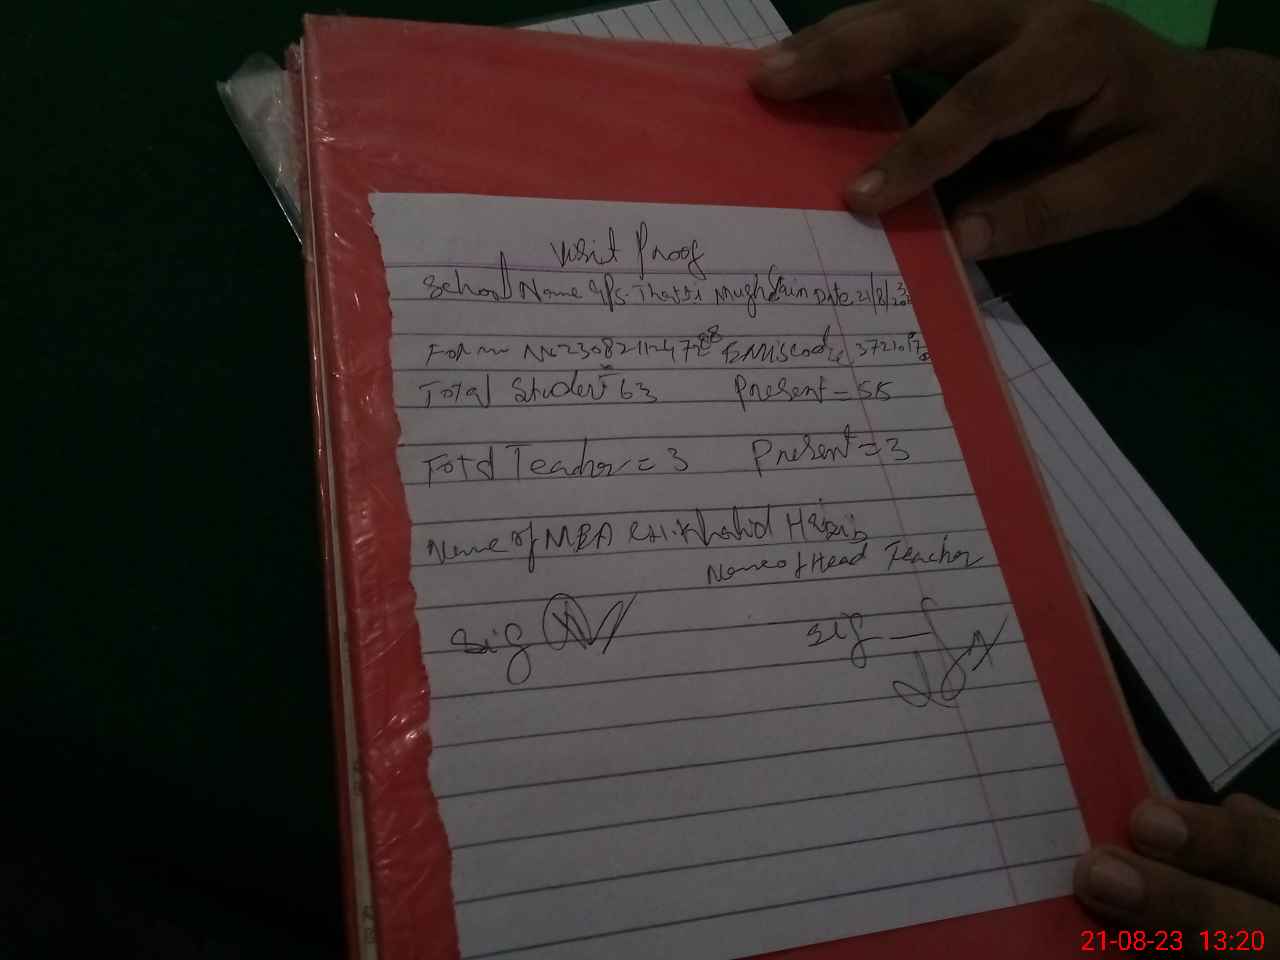 Visit Proof
School Name G/P/S. Thatti Mughlain Date, 21/8/2023
Form No 23082112472 88 EMIScode 3721017
Total Student 63 Present = 55
Total Teacher = 3 Present = 3
Name of MEA CH. Khalid Habib
Name of Head Teacher
Sig Sig
21-08-23 13:20